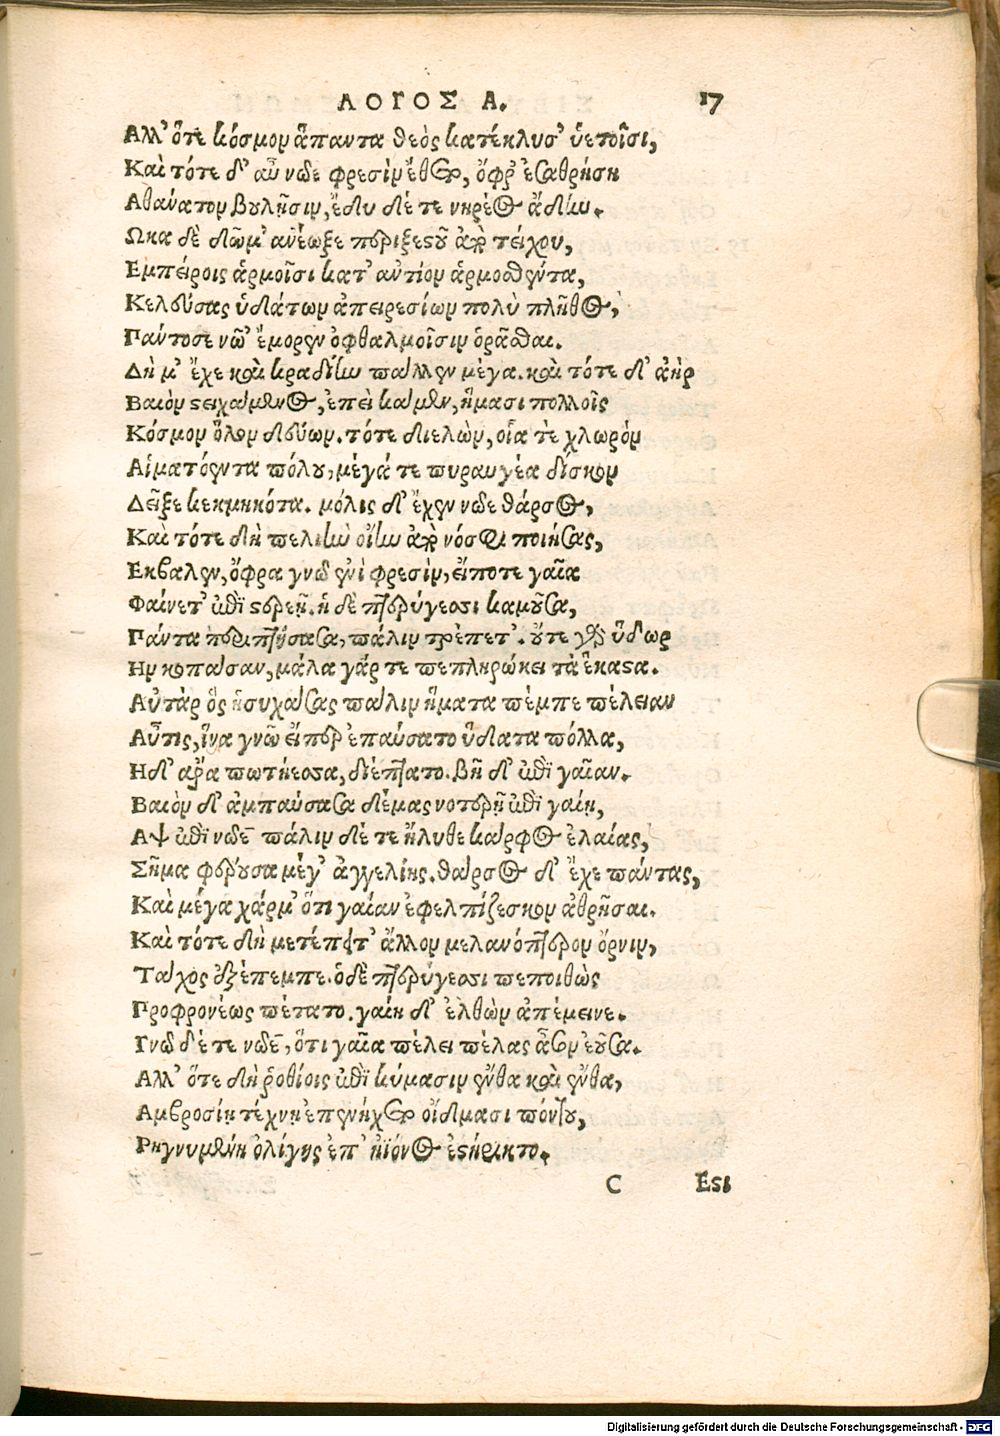 ΛΟΓΟΣ Α. 17
Αλλ' ὅτε κόσμον ἅπαντα θεὸς κατέκλυσ' ὑετοῖσι,
Καὶ τότε δ' αὖ νῶε φρεσὶν ἔθετο, ὄφρ' ἐσαθρήσῃ
Αθανάτου βουλῇσιν, ἔδυ δέ τε νηρέος ἄδην.
Ωκα δὲ δῶμ' ἀνέωξε περιξεστοῦ ἀπὸ τείχου,
Εμπείροις ἁρμοῖσι κατ' αὐτίον ἁρμοσθέντα,
Κελούσας ὑδάτων ἀπειρεσίων πολὺ πλῆθος,
Πάντοσε νῶ' ἔμορεν ὀφθαλμοῖσιν ὁρᾶσθαι.
Δὴ μ' ἔχε καὶ κραδίην πάλλεν μέγα. καὶ τότε δ' ἀὴρ
Βαιὸν στειλάμενος, ἐπεὶ κάμεν, ἤμασι πολλοῖς
Κόσμον ὅλον δεύων. τότε διελὼν, οἷα τὲ χλωρὸν
Αἱματόεντα πόλου, μέγά τε πυραυγέα δίσκον
Δεῖξε κεκμηκότα. μόλις δ' ἔχεν νῶε θάρσος,
Καὶ τότε δὴ πελιὴν οἴην ἀπὸ νόσφι ποιήσας,
Εκβαλεν, ὄφρα γνῷ ἐνὶ φρεσὶν, εἴποτε γαῖα
Φαίνετ' ἔτι στερεῇ. ἡ δὲ πτερύγεσσι καμοῦσα,
Πάντα περιπτήσασα, πάλιν τρέπετ'. οὔτε γὰρ ὕδωρ
Ην κοπάσαν, μάλα γάρ τε πεπληρώκει τὰ ἕκαστα.
Αὐτὰρ ὃς ἡσυχάσας πάλιν ἤματα πέμπε πέλειαν
Αὖτις, ἵνα γνῶ εἴπερ ἐπαύσατο ὕδατα πόλλα,
Ηδ' ἄρα πωτήεσσα, διέπτατο. βῆ δ' ἐπὶ γαῖαν.
Βαιὸν δ' ἀμπαύσασα δέμας νοτερῇ ἐπὶ γαίῃ,
Αψ ἐπὶ νῶε πάλιν δέ τε ἤλυθε κάρφος ἐλαίας,
Σῆμα φέρουσα μέγ' ἀγγελίης. θάρσος δ' ἔχε πάντας,
Καὶ μέγα χάρμ' ὅτι γαίαν ἐφελπίζεσκον ἀθρῆσαι.
Καὶ τότε δὴ μετέπειτ' ἄλλον μελανόπτερον ὄρνιν,
Τάχος ἐξέπεμπε. ὁ δὲ πτερύγεσσι πεποιθὼς
Προφρονέως πέτατο. γαίῃ δ' ἐλθὼν ἀπέμεινε.
Γνῶ δέ τε νῶε, ὅτι γαῖα πέλει πέλας ἆσσον ἐοῦσα.
Αλλ' ὅτε δὴ ῥοθίοις ἐπὶ κύμασιν ἔνθα καὶ ἔνθα,
Αμβροσίη τέχνη ἐπενήχετο οἴδμασι πόντου,
Ρηγνυμένη ὀλίγης ἐπ' ἠϊόνος ἐστήρικτο.
C Εστι
Digitalisierung gefördert durch die Deutsche Forschungsgemeinschaft - DFG